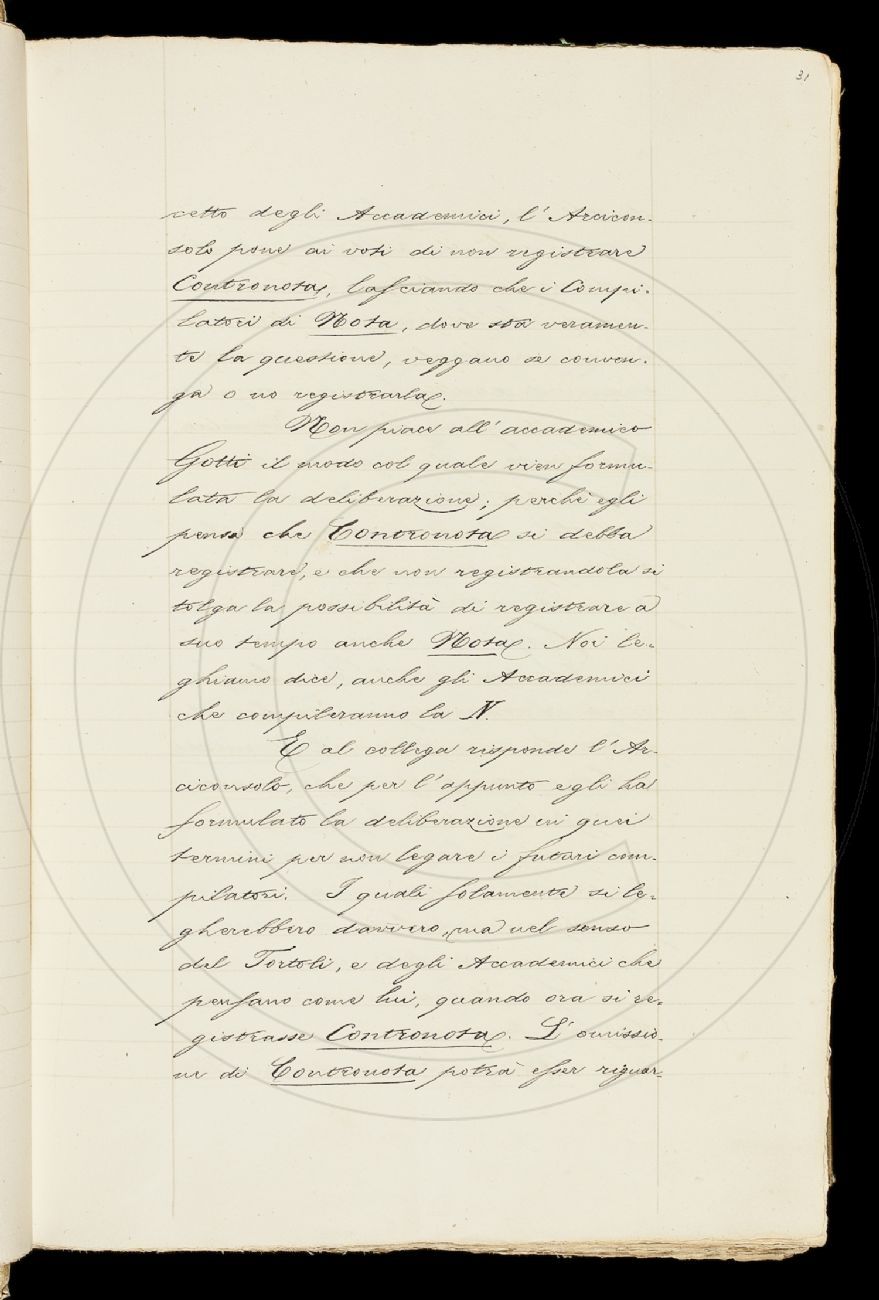 31
cetto degli Accademici, l'Arcicon-
solo pone ai voti di non registrare
Contronota, lasciando che i Compi-
latori di Nota, dove sta veramen-
te la questione, veggano se conven-
ga o no registrarla.
Non piace all'accademico
Gotti il modo col quale vien formu-
lata la deliberazione; perchè egli
pensa che Contronota si debba
registrare, e che non registrandola si
tolga la possibilità di registrare a
suo tempo anche Nota. Noi le-
ghiamo dice, anche gli Accademici
che compileranno la N.
E al collega risponde l'Ar-
ciconsolo, che per l'appunto egli ha
formulato la deliberazione in quei
termini per non legare i futuri com-
pilatori. I quali solamente si le-
gherebbero davvero, ma nel senso
del Tortoli, e degli Accademici che
pensano come lui, quando ora si re-
gistrasse Contronota. L'omissio-
ne di Contronota potrà esser riguar-